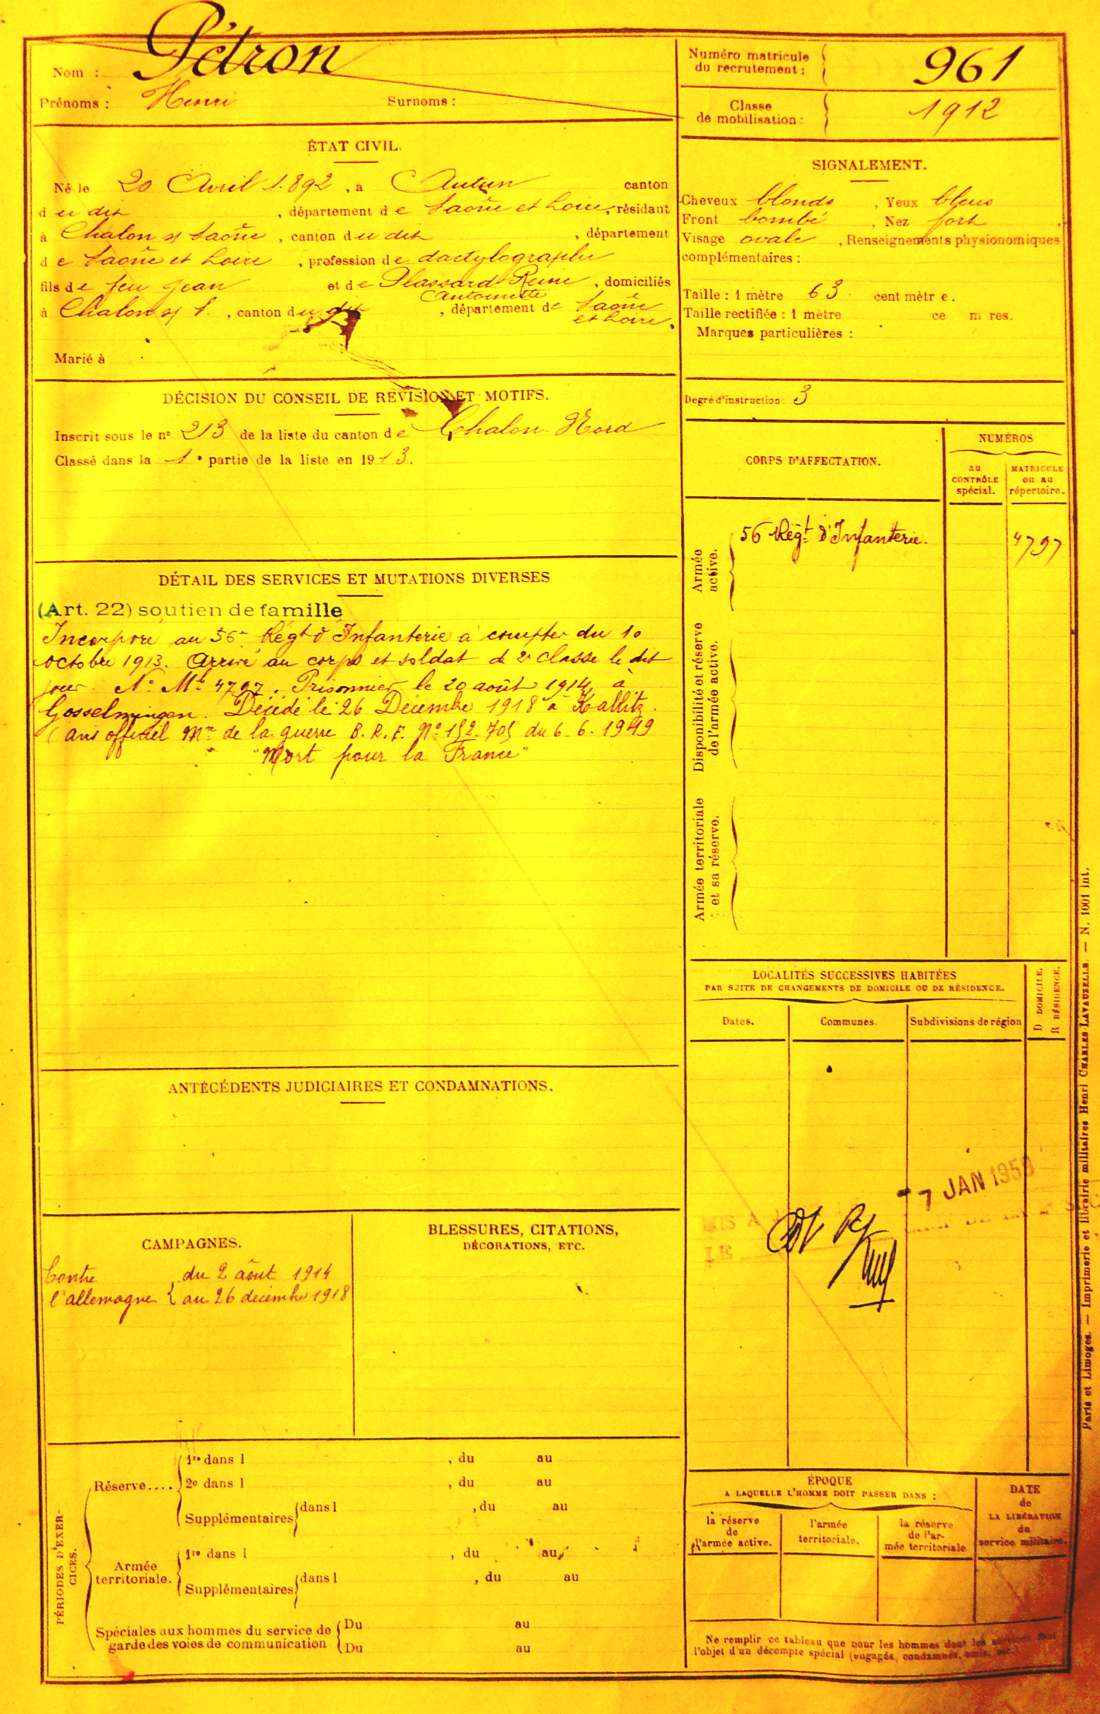 Nom : Pétron
Prénoms : Henri Surnoms :
Numéro matricule
du recrutement : 961
Classe
de mobilisation : 1912
ÉTAT CIVIL.
Né le 20 Avril 1892, à Autun canton
d u dit, département d e Saône et Loire, résidant
à Chalon s/ Saône, canton d u dit, département
d e Saône et Loire, profession d e dactylographe
fils d e feu Jean et d e Plassard Reine, domiciliés
Antoinette
à Chalon s/ S., canton d u dit, département d e Saône
et Loire.
Marié à
SIGNALEMENT.
Cheveux blonds, Yeux bleus
Front bombé, Nez fort
Visage ovale, Renseignements physionomiques
complémentaires :
Taille : 1 mètre 63 cent mètr e.
Taille rectifiée : 1 mètre ce m res.
Marques particulières :
Degré d'instruction : 3
DÉCISION DU CONSEIL DE REVISION ET MOTIFS.
Inscrit sous le n° 213 de la liste du canton d e Chalon Nord
Classé dans la 1e partie de la liste en 1913.
CORPS D'AFFECTATION.
NUMÉROS
AU
CONTRÔLE
spécial.
MATRICULE
OU AU
répertoire.
Armée
active.
56 Régt d'Infanterie. 4797
Disponibilité et réserve
de l'armée active.
Armée territoriale
et sa réserve.
DÉTAIL DES SERVICES ET MUTATIONS DIVERSES
(Art. 22) soutien de famille
Incorporé au 56e Régt d'Infanterie à compter du 10
octobre 1913. Arrivé au corps et soldat de 2e classe le dit
jour. No Mle 4797. Prisonnier le 20 août 1914 à
Gosselmingen. Décédé le 26 Décembre 1918 à Kallitz.
(avis officiel Mre de la guerre B.R.F. No 152.705 du 6.6.1949
"Mort pour la France"
LOCALITÉS SUCCESSIVES HABITÉES
PAR SUITE DE CHANGEMENTS DE DOMICILE OU DE RÉSIDENCE.
Dates. Communes. Subdivisions de région
D DOMICILE.
R RÉSIDENCE.
7 JAN 1950
MIS A
LE
ANTÉCÉDENTS JUDICIAIRES ET CONDAMNATIONS.
CAMPAGNES.
Contre du 2 août 1914
l'allemagne au 26 décembre 1918
BLESSURES, CITATIONS,
DÉCORATIONS, ETC.
PÉRIODES D'EXER-
CICES.
Réserve....
1re dans l , du au
2e dans l , du au
Supplémentaires dans l , du au
Armée
territoriale.
1re dans l , du au
Supplémentaires dans l , du au
Spéciales aux hommes du service de
garde des voies de communication
Du au
Du au
ÉPOQUE
A LAQUELLE L'HOMME DOIT PASSER DANS :
la réserve
de
l'armée active.
l'armée
territoriale.
la réserve
de l'ar-
mée territoriale
DATE
de
LA LIBÉRATION
du
service militaire.
Ne remplir ce tableau que pour les hommes dont les services font
l'objet d'un décompte spécial (engagés, condamnés, omis, etc.)
Paris et Limoges. — Imprimerie et librairie militaires Henri CHARLES-LAVAUZELLE. — N. 1001 int.